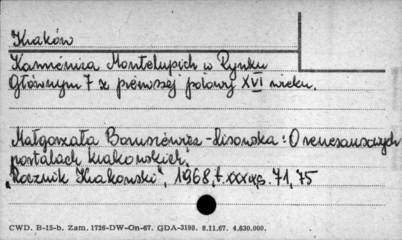 Kraków
Kamienica Montelupich w Rynku
Głównym 7 z pierwszej połowy XVI wieku.
Małgorzata Borusiewicz-Lisowska: O renesansowych
portalach krakowskich.
"Rocznik Krakowski", 1968, t. XXXIX, s. 71, 75
CWD. B-15-b. Zam. 1726-DW-On-67. GDA-3190. 8.11.67. 4.630.000.